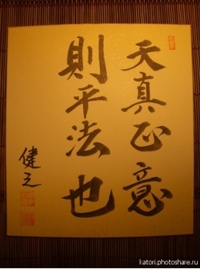 天真正意
則平法也
健之
katori.photoshare.ru